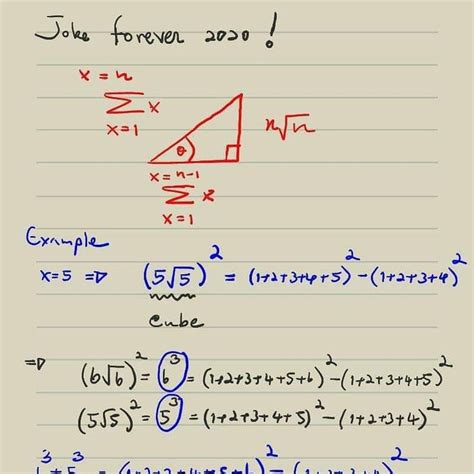 Joke forever 2020 !
x = n
∑ x
x = 1
θ
n√n
x = n-1
∑ x
x = 1
Example
x=5 ⇒ (5√5)² = (1+2+3+4+5)² - (1+2+3+4)²
cube
⇒ (6√6)² = 6³ = (1+2+3+4+5+6)² - (1+2+3+4+5)²
(5√5)² = 5³ = (1+2+3+4+5)² - (1+2+3+4)²